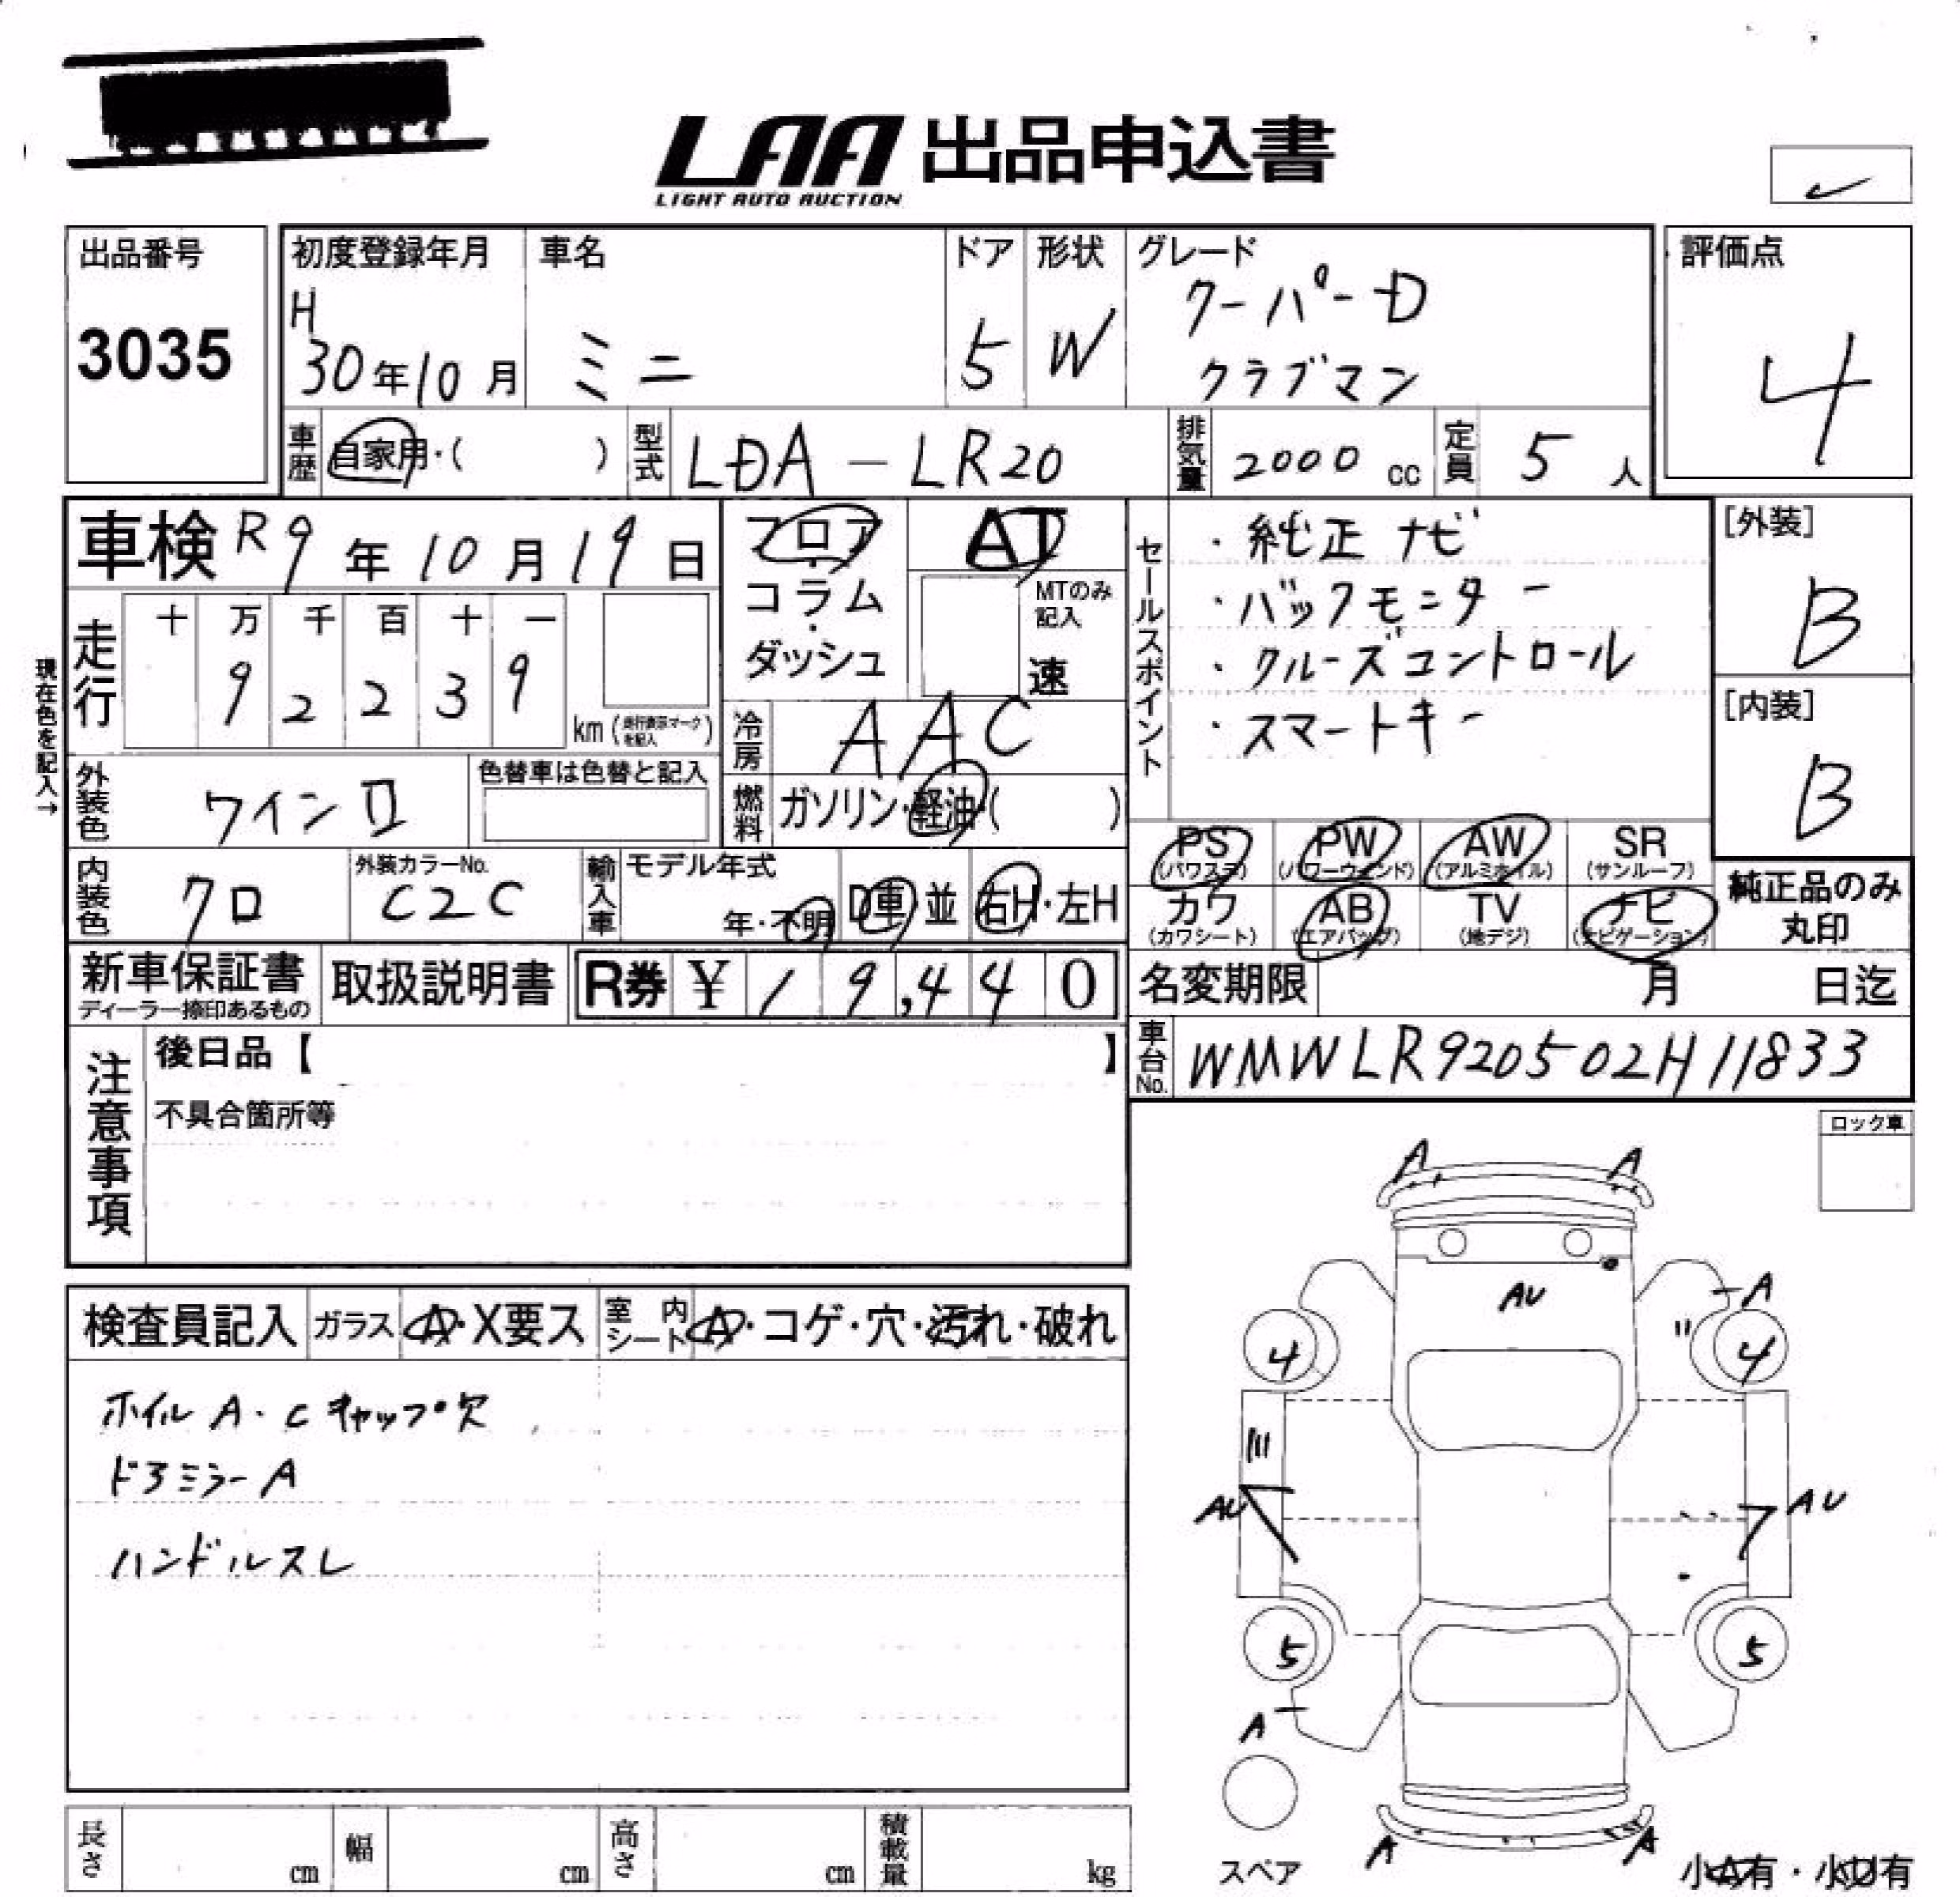 LAA 出品申込書
LIGHT AUTO AUCTION
出品番号
3035
初度登録年月
H
30年10月
車名
ミニ
ドア
5
形状
W
グレード
クーパーD
クラブマン
評価点
4
車歴
自家用・( )
型式
LDA-LR20
排気量
2000 cc
定員
5 人
車検 R9年10月19日
フロア・
コラム・
ダッシュ
AT
MTのみ
記入
速
セールスポイント
・純正ナビ
・バックモニター
・クルーズコントロール
・スマートキー
[外装]
B
[内装]
B
現在色を記入→
走行
十 万 千 百 十 一
9 2 2 3 9
km (走行表示マークを記入)
冷房
AAC
外装色
ワインII
色替車は色替と記入
燃料
ガソリン・軽油・( )
PS
(パワステ)
PW
(パワーウインド)
AW
(アルミホイル)
SR
(サンルーフ)
カワ
(カワシート)
AB
(エアバッグ)
TV
(地デジ)
ナビ
(ナビゲーション)
純正品のみ
丸印
内装色
クロ
外装カラーNo.
C2C
輸入車
モデル年式
年・不明
D車・並
右H・左H
新車保証書
ディーラー捺印あるもの
取扱説明書
R券 ¥ 19,440
名変期限 月 日迄
車台No.
WMWLR920502H11833
注意事項
後日品【 】
不具合箇所等
ロック車
検査員記入
ガラス
A・X要ス
室内シート
A・コゲ・穴・汚れ・破れ
ホイル A・C キャップ欠
ドアミラーA
ハンドルスレ
A
A
AU
A
4
4
AU
AU
5
5
A
A
A
スペア
小A有・小U有
長さ cm
幅 cm
高さ cm
積載量 kg